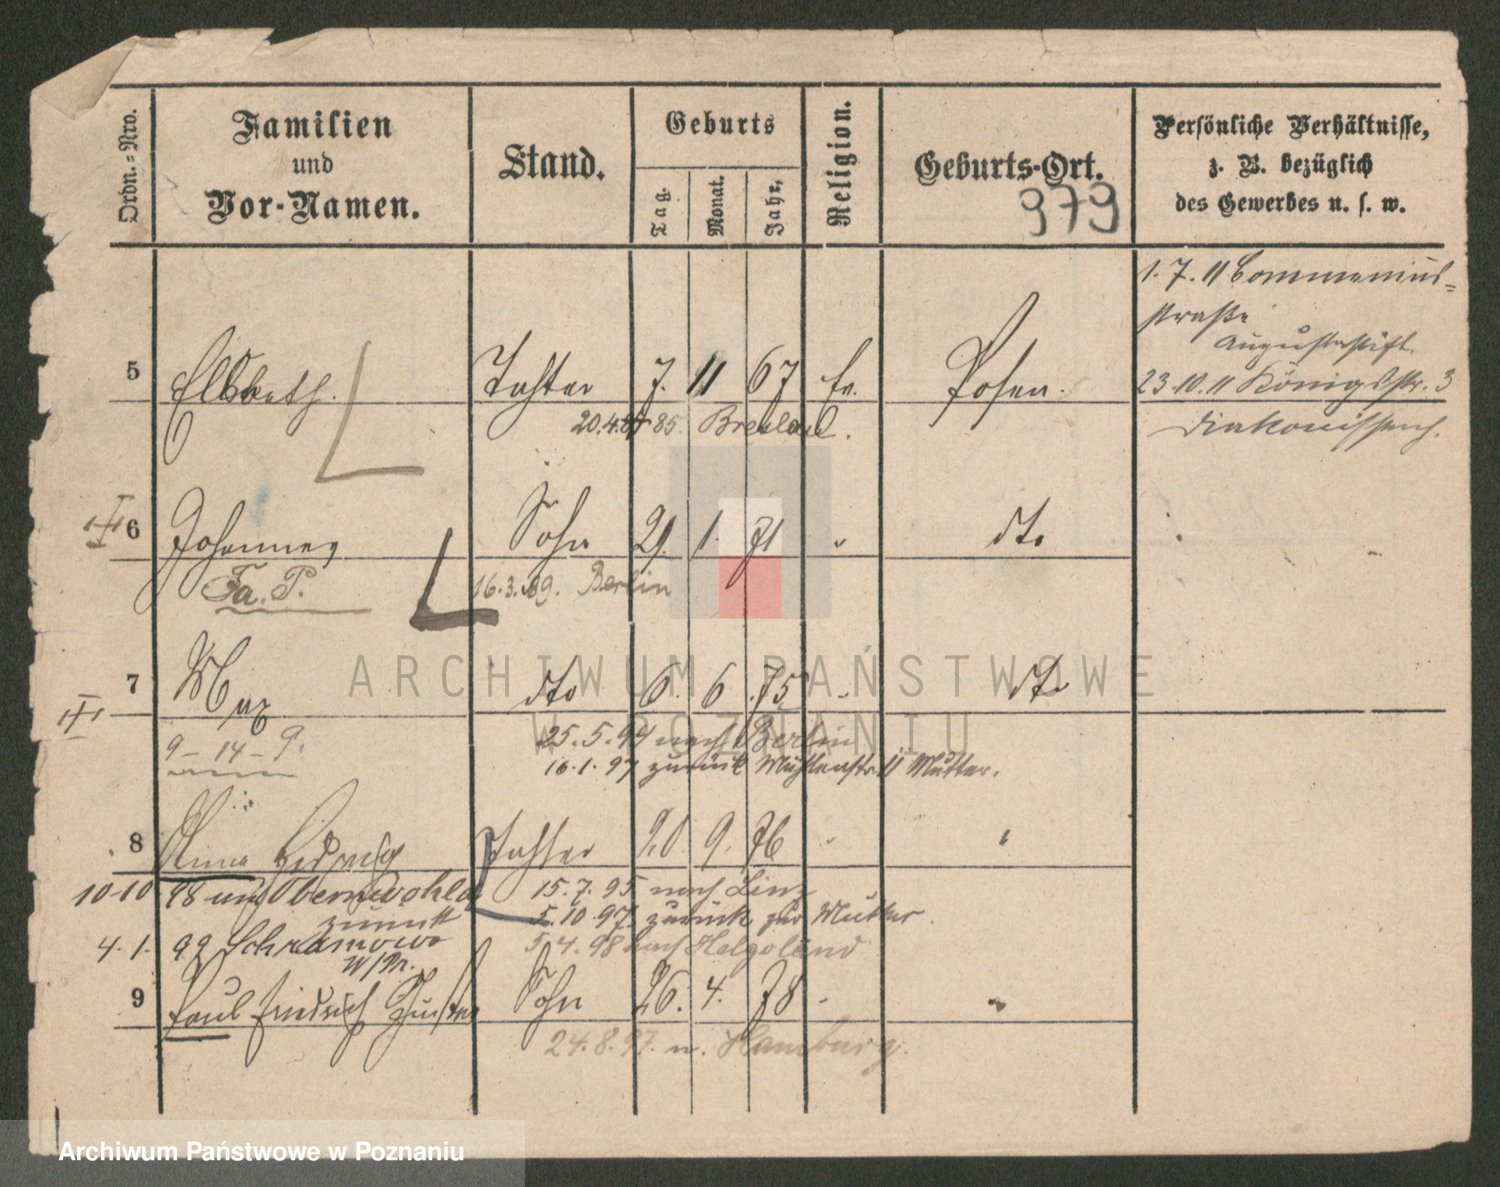 Ordn.=Nro.
Familien
und
Vor-Namen.
Stand.
Geburts
Tag.
Monat.
Jahr.
Religion.
Geburts-Ort.
979
Persönliche Verhältnisse,
z. B. bezüglich
des Gewerbes u. s. w.
1. 7. 11 Commenius=
straße
Augustastift.
5 Elsbeth. Tochter 7. 11 67 Ev. Posen.
23.10.11 Königsstr. 3
20.4.85. Breslau.
Diakonissenh.
6 Johannes Sohn 29. 1. 71 " dto
Fa. P.
16.3.89. Berlin
7 Max dto 6. 6 .75 " dto
9-14-9.
25.5.94 nach Berlin
16.1.97 zurück Mühlenstr. 11 Mutter.
8 Anna Hedwig Tochter 20 9. 76 " "
10.10 98 aus zurück
15.7.95 nach Linz
5.10.97 zurück zur Mutter.
4.1. 99 Schramowo
W/Pr.
5.4.98 nach Helgoland
9 Paul Friedrich Gustav Sohn 26. 4. 78 " "
24.8.97. n. Hamburg.
ARCHIWUM PAŃSTWOWE
W POZNANIU
Archiwum Państwowe w Poznaniu